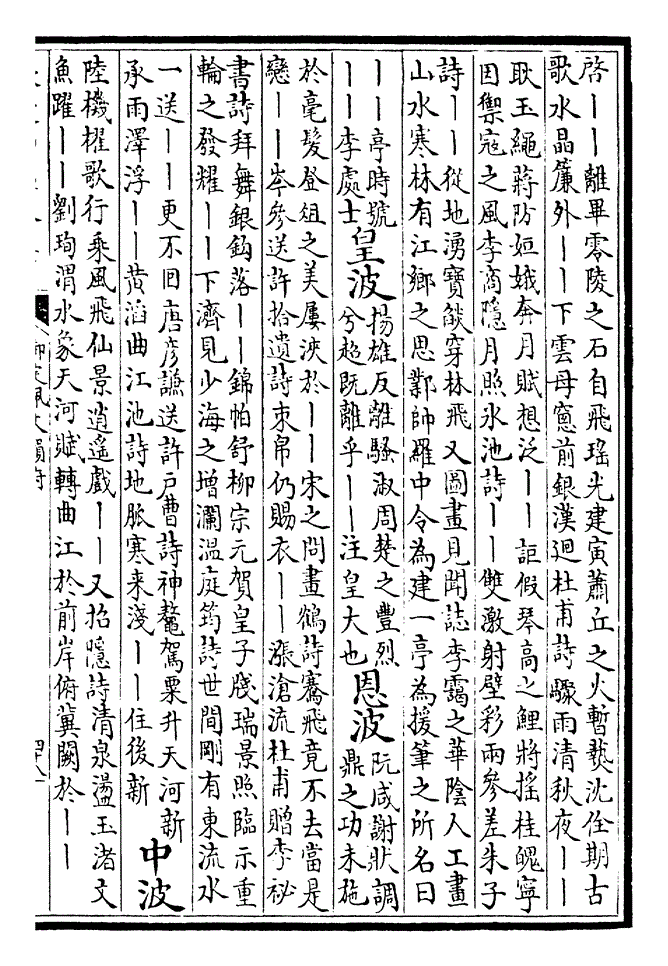 啓丨丨離畢零陵之石自飛瑤光建寅蕭丘之火暫爇沈佺期古
歌水晶簾外丨丨下雲母窻前銀漢迴杜甫詩驟雨清秋夜丨丨
耿玉繩蔣防姮娥奔月賦想泛丨丨詎假琴高之鯉將搖桂魄寧
因禦寇之風李商隱月照氷池詩丨丨雙激射壁彩兩參差朱子
詩丨丨從地湧寶燄穿林飛又圖畫見聞誌李靄之華陰人工畫
山水寒林有江鄉之思鄴帥羅中令為建一亭為援筆之所名曰
丨丨亭時號
丨丨李處士
皇波
揚雄反離騷淑周楚之豐烈
兮超既離乎丨丨注皇大也
恩波
阮咸謝狀調
鼎之功未施
於毫髮登俎之美屢浹於丨丨宋之問畫鶴詩騫飛竟不去當是
戀丨丨岑參送許拾遺詩束帛仍賜衣丨丨漲滄流杜甫贈李秘
書詩拜舞銀鈎落丨丨錦帕舒柳宗元賀皇子牋瑞景照臨示重
輪之發耀丨丨下濟見少海之增瀾溫庭筠詩世間剛有東流水
一送丨丨更不囘唐彥謙送許戶曹詩神鼇駕粟升天河新
承雨澤浮丨丨黄滔曲江池詩地脈寒来淺丨丨住後新
中波
陸機櫂歌行乘風飛仙景逍遙戲丨丨又招隱詩清泉盪玉渚文
魚躍丨丨劉珣渭水象天河賦轉曲江於前岸俯冀闕於丨丨
四十八